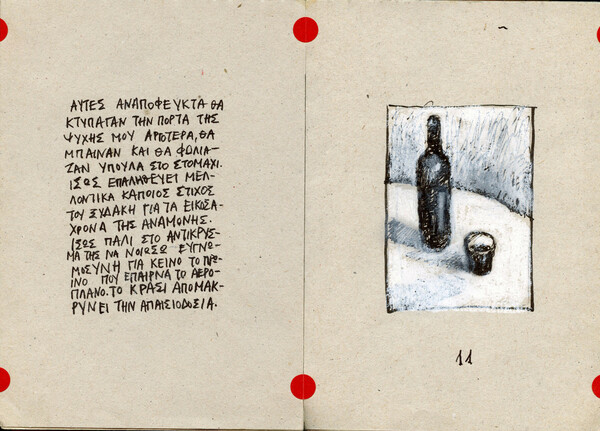 ΑΥΤΕΣ ΑΝΑΠΟΦΕΥΚΤΑ ΘΑ
ΚΤΥΠΑΓΑΝ ΤΗΝ ΠΟΡΤΑ ΤΗΣ
ΨΥΧΗΣ ΜΟΥ ΑΡΓΟΤΕΡΑ, ΘΑ
ΜΠΑΙΝΑΝ ΚΑΙ ΘΑ ΦΩΛΙΑ-
ΖΑΝ ΥΠΟΥΛΑ ΣΤΟ ΣΤΟΜΑΧΙ.
ΙΣΩΣ ΕΠΑΛΗΘΕΥΕΙ ΜΕΛ-
ΛΟΝΤΙΚΑ ΚΑΠΟΙΟΣ ΣΤΙΧΟΣ
ΤΟΥ ΞΥΔΑΚΗ ΓΙΑ ΤΑ ΕΙΚΟΣΑ-
ΧΡΟΝΑ ΤΗΣ ΑΝΑΜΟΝΗΣ.
ΙΣΩΣ ΠΑΛΙ ΣΤΟ ΑΝΤΙΚΡΥΣ-
ΜΑ ΤΗΣ ΝΑ ΝΟΙΩΣΩ ΕΥΓΝΩ-
ΜΟΣΥΝΗ ΓΙΑ ΚΕΙΝΟ ΤΟ ΠΡΩ-
ΙΝΟ ΠΟΥ ΕΠΑΙΡΝΑ ΤΟ ΑΕΡΟ-
ΠΛΑΝΟ. ΤΟ ΚΡΑΣΙ ΑΠΟΜΑΚ-
ΡΥΝΕΙ ΤΗΝ ΑΠΑΙΣΙΟΔΟΞΙΑ.
11